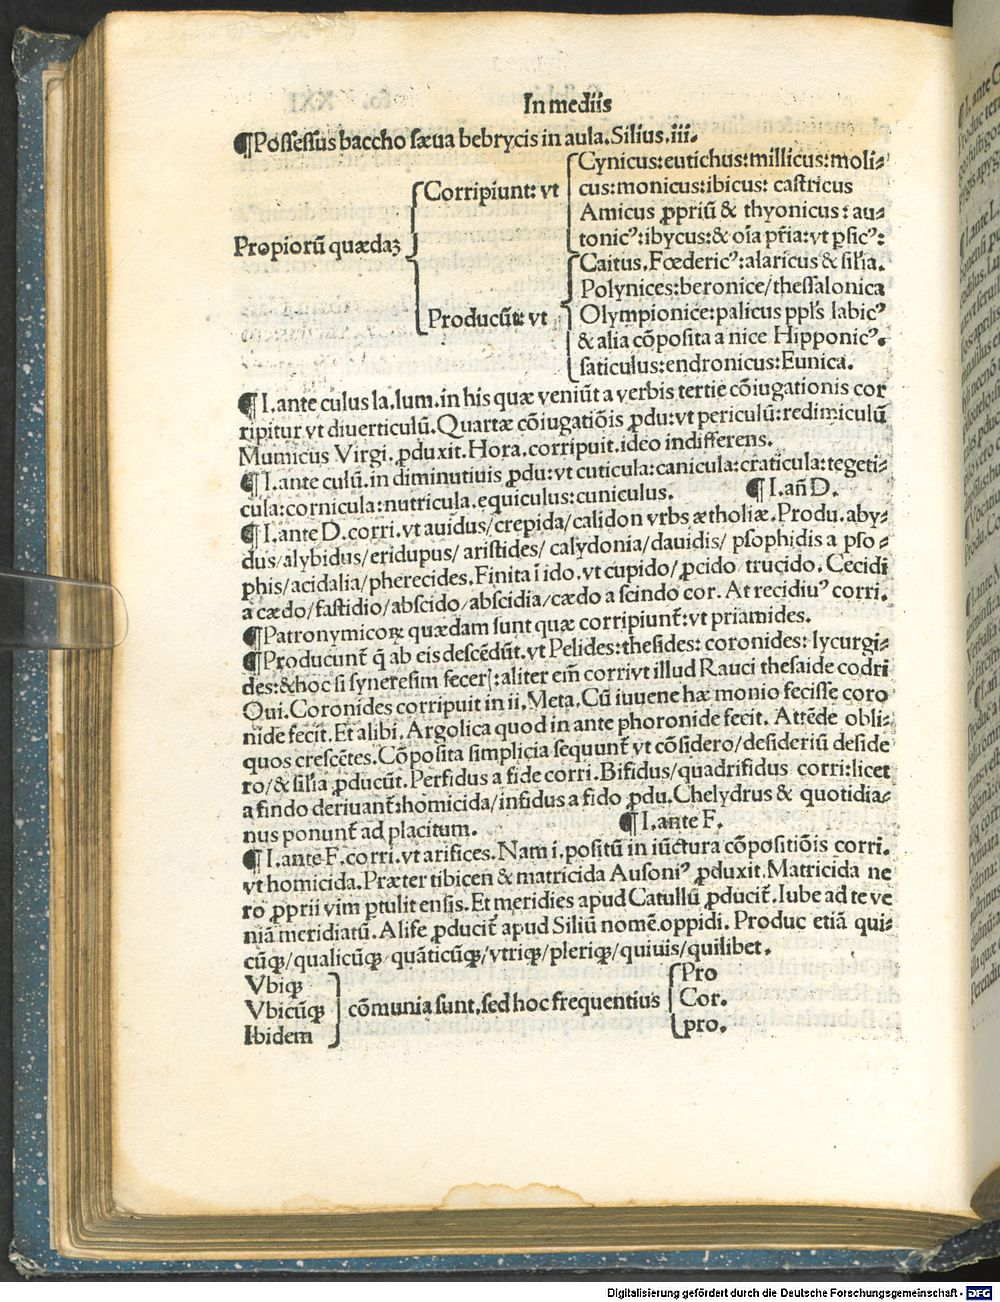 In mediis
¶Possessus baccho sæua bebrycis in aula. Silius. iii.
Propiorū quædaꝫ
Corripiunt: vt
Cynicus: eutichus: millicus: moli⸗
cus: monicus: ibicus: castricus
Amicus ꝓpriū & thyonicus: au⸗
tonicꝰ: ibycus: & oīa pr̄ia: vt ꝑsicꝰ:
Producūt: vt
Caitus. Fœdericꝰ: alaricus & silīa.
Polynices: beronice/thessalonica
Olympionice: palicus ppl's labicꝰ
& alia cōposita a nice Hipponicꝰ.
saticulus: endronicus: Eunica.
¶I. ante culus la. lum. in his quæ veniūt a verbis tertie cōiugationis cor
ripitur vt diuerticulū. Quartæ cōiugatiōis ꝓdu: vt periculū: redimiculū
Mumicus Virgi. ꝓduxit. Hora. corripuit. ideo indifferens.
¶I. ante culū. in diminutiuis ꝓdu: vt cuticula: canicula: craticula: tegeti⸗
cula: cornicula: nutricula. equiculus: cuniculus. ¶I. añ D.
¶I. ante D. corri. vt auidus/crepida/calidon vrbs ætholiæ. Produ. aby⸗
dus/alybidus/eridupus/ aristides/ calydonia/dauidis/ psophidis a pso⸗
phis/acidalia/pherecides. Finita ī ido. vt cupido/ꝓcido trucido. Cecidi
a cædo/fastidio/abscido/abscidia/cædo a scindo cor. At recidiuꝰ corri.
¶Patronymicoꝝ quædam sunt quæ corripiunt̄: vt priamides.
¶Producunt̄ q̄ ab eis descēdūt. vt Pelides: thesides: coronides: lycurgi⸗
des: & hoc si syneresim fecerī: aliter em̄ corrivt illud Rauci thesaide codri
Oui. Coronides corripuit in ii. Meta. Cū iuuene hæmonio fecisse coro
nide fecit. Et alibi. Argolica quod in ante phoronide fecit. Atrēde obli⸗
quos crescētes. Cōposita simplicia sequunt̄ vt cōsidero/desideriū deside
ro/& silīa ꝓducūt. Perfidus a fide corri. Bifidus/quadrifidus corri: licet
a findo deriuant̄: homicida/infidus a fido ꝓdu. Chelydrus & quotidia⸗
nus ponunt̄ ad placitum. ¶I. ante F.
¶I. ante F. corri. vt arifices. Nam i. positū in iūctura cōpositiōis corri.
vt homicida. Præter tibicen & matricida Ausoniꝰ ꝓduxit. Matricida ne
ro ꝓprii vim ꝑtulit ensis. Et meridies apud Catullū ꝓducit̄. Iube ad te ve
niā meridiatū. Alife ꝓducit̄ apud Siliū nomē oppidi. Produc etiā qui⸗
cūqꝫ/qualicūqꝫ quāticūqꝫ/vtriqꝫ/pleriqꝫ/quiuis/quilibet.
Vbiqꝫ
Vbicūqꝫ
Ibidem
cōmunia sunt, sed hoc frequentius
Pro
Cor.
pro.
Digitalisierung gefördert durch die Deutsche Forschungsgemeinschaft - DFG